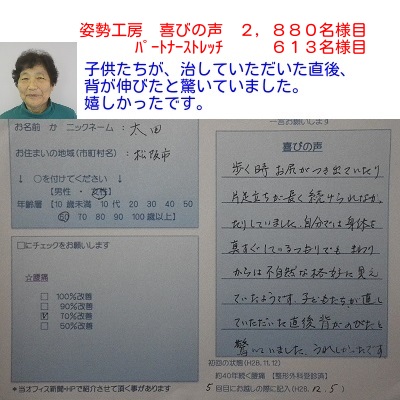 姿勢工房　喜びの声　２，８８０名様目
ﾊﾟｰﾄﾅｰｽﾄﾚｯﾁ　６１３名様目
子供たちが、治していただいた直後、
背が伸びたと驚いていました。
嬉しかったです。
一言お願いします
お名前 か ニックネーム： 太田
お住まいの地域（市町村名）： 松阪市
↓ ○を付けてください ↓
【男性 ・ 女性】
年齢層 【10 歳未満 10 代 20 30 40 50
60 70 80 90 100歳以上】
□にチェックをお願いします
☆腰痛
100%改善
90%改善
70%改善
50%改善
*当オフィス新聞+HPで紹介させて頂く事があります
喜びの声
歩く時 お尻がつき出ていたり
片足立ちが長く続けられなか
ったりしていました。自分では身体を
真すぐしているつもりでも まわり
からは不自然な格好に見え
ていたようです。子どもたちが直し
ていただいた直後 背がのびたと
驚いていました。うれしかったです
初回の状態（H28.11.12）
約40年続く腰痛 【整形外科受診済】
5回目にお越しの際に記入（H28. 12. 5）